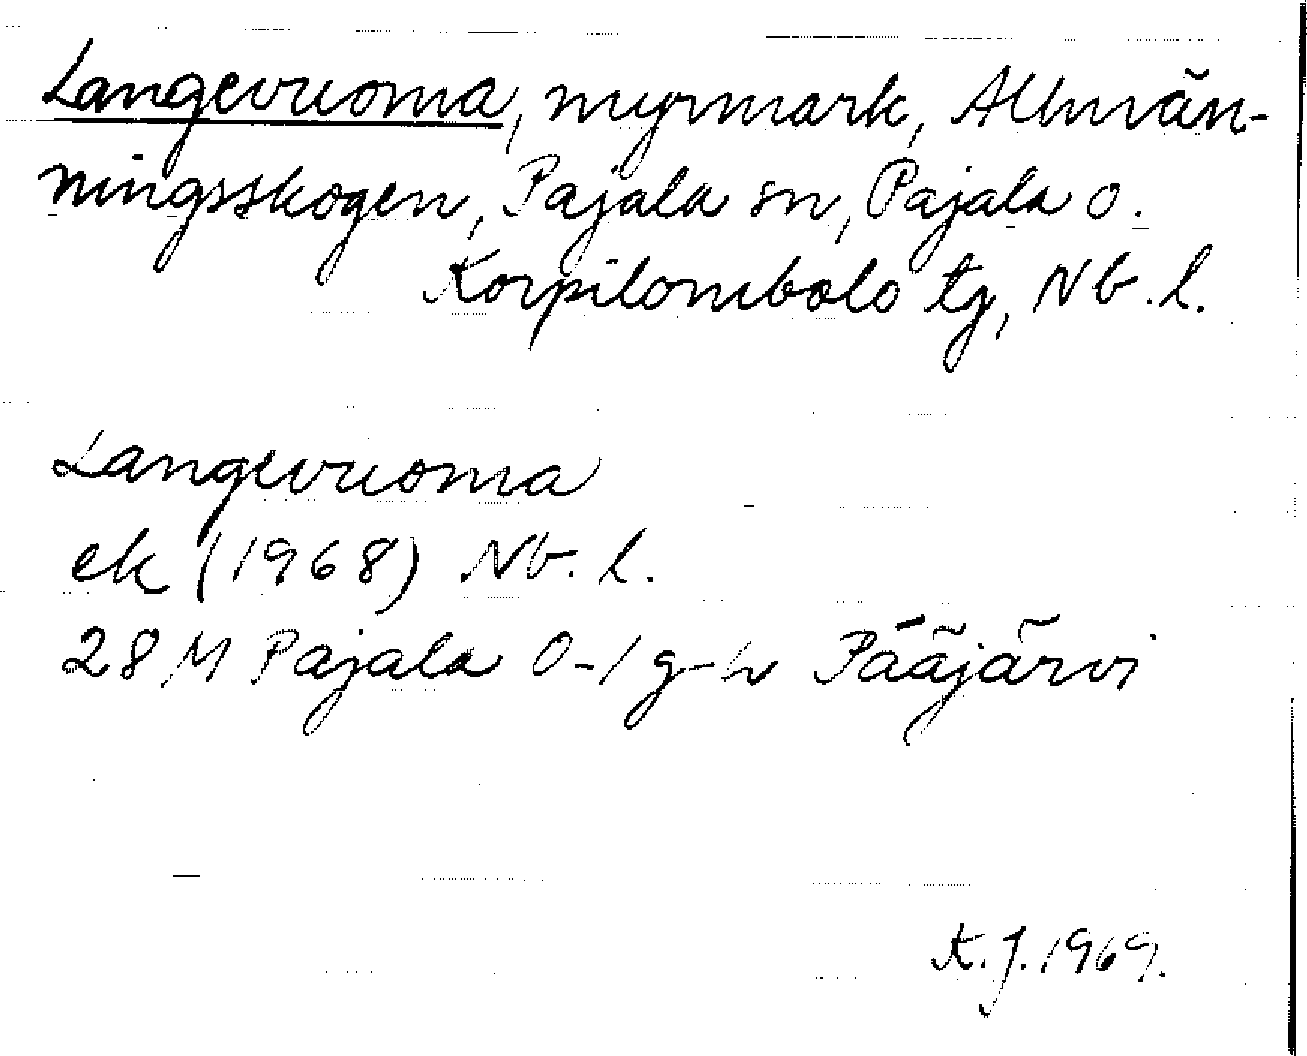 Langevuoma, myrmark, Allmän-
ningsskogen, Pajala sn, Pajala o.
Korpilombolo tg, Nb. l.
Langevuoma
ek (1968) Nb. l.
28 M Pajala 0-1 g-h Pääjärvi
K.J. 1969.